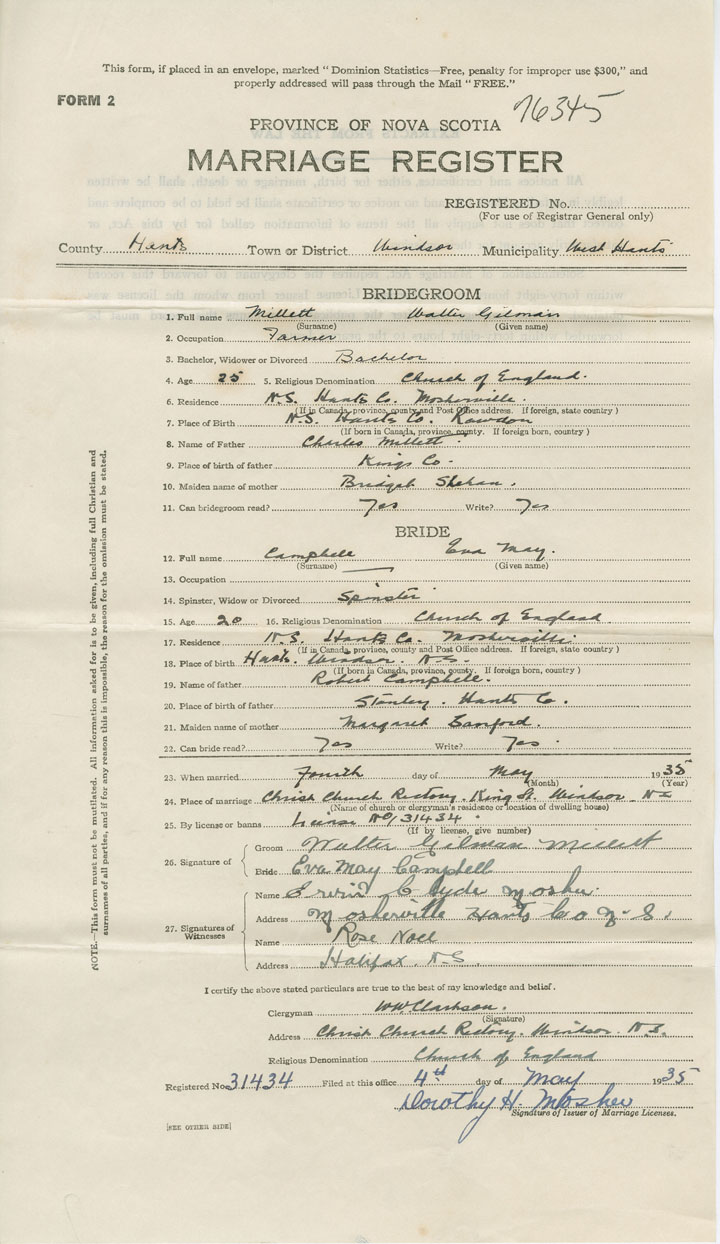 This form, if placed in an envelope, marked "Dominion Statistics—Free, penalty for improper use $300," and
properly addressed will pass through the Mail "FREE."
FORM 2
76345
PROVINCE OF NOVA SCOTIA
MARRIAGE REGISTER
REGISTERED No.
(For use of Registrar General only)
County Hants Town or District Windsor Municipality West Hants
BRIDEGROOM
1. Full name Millett Walter Gilman
(Surname) (Given name)
2. Occupation Farmer
3. Bachelor, Widower or Divorced Bachelor
4. Age 25 5. Religious Denomination Church of England.
6. Residence N.S. Hants Co. Mosherville.
(If in Canada, province, county and Post Office address. If foreign, state country )
7. Place of Birth N.S. Hants Co. Rawdon
(If born in Canada, province, county. If foreign born, country )
8. Name of Father Charles Millett.
9. Place of birth of father Kings Co.
10. Maiden name of mother Bridget Shehan.
11. Can bridegroom read? Yes Write? Yes
BRIDE
12. Full name Campbell Eva May.
(Surname) (Given name)
13. Occupation —
14. Spinster, Widow or Divorced Spinster
15. Age 20 16. Religious Denomination Church of England
17. Residence N.S. Hants Co. Mosherville.
(If in Canada, province, county and Post Office address. If foreign, state country )
18. Place of birth Hants. Windsor. N.S.
(If born in Canada, province, county. If foreign born, country )
19. Name of father Robert Campbell.
20. Place of birth of father Stanley. Hants Co.
21. Maiden name of mother Margaret Sanford.
22. Can bride read? Yes Write? Yes.
23. When married Fourth day of May 1935
(Month) (Year)
24. Place of marriage Christ Church Rectory. King St. Windsor N.S
(Name of church or clergyman's residence or location of dwelling house)
25. By license or banns License No/31434.
(If by license, give number)
26. Signature of
Groom Walter Gilman Millett
Bride Eva May Campbell
27. Signatures of Witnesses
Name Erwin Clyde Mosher.
Address Mosherville Hants Co N.S.
Name Rose Noel
Address Halifax. N.S.
I certify the above stated particulars are true to the best of my knowledge and belief.
Clergyman WW Clarkson.
(Signature)
Address Christ Church Rectory. Windsor. N.S.
Religious Denomination Church of England
Registered No. 31434 Filed at this office 4th day of May 1935
Dorothy H. Mosher
Signature of Issuer of Marriage Licenses.
[SEE OTHER SIDE]
NOTE.—This form must not be mutilated. All information asked for is to be given, including full Christian and
surnames of all parties, and if for any reason this is impossible, the reason for the omission must be stated.